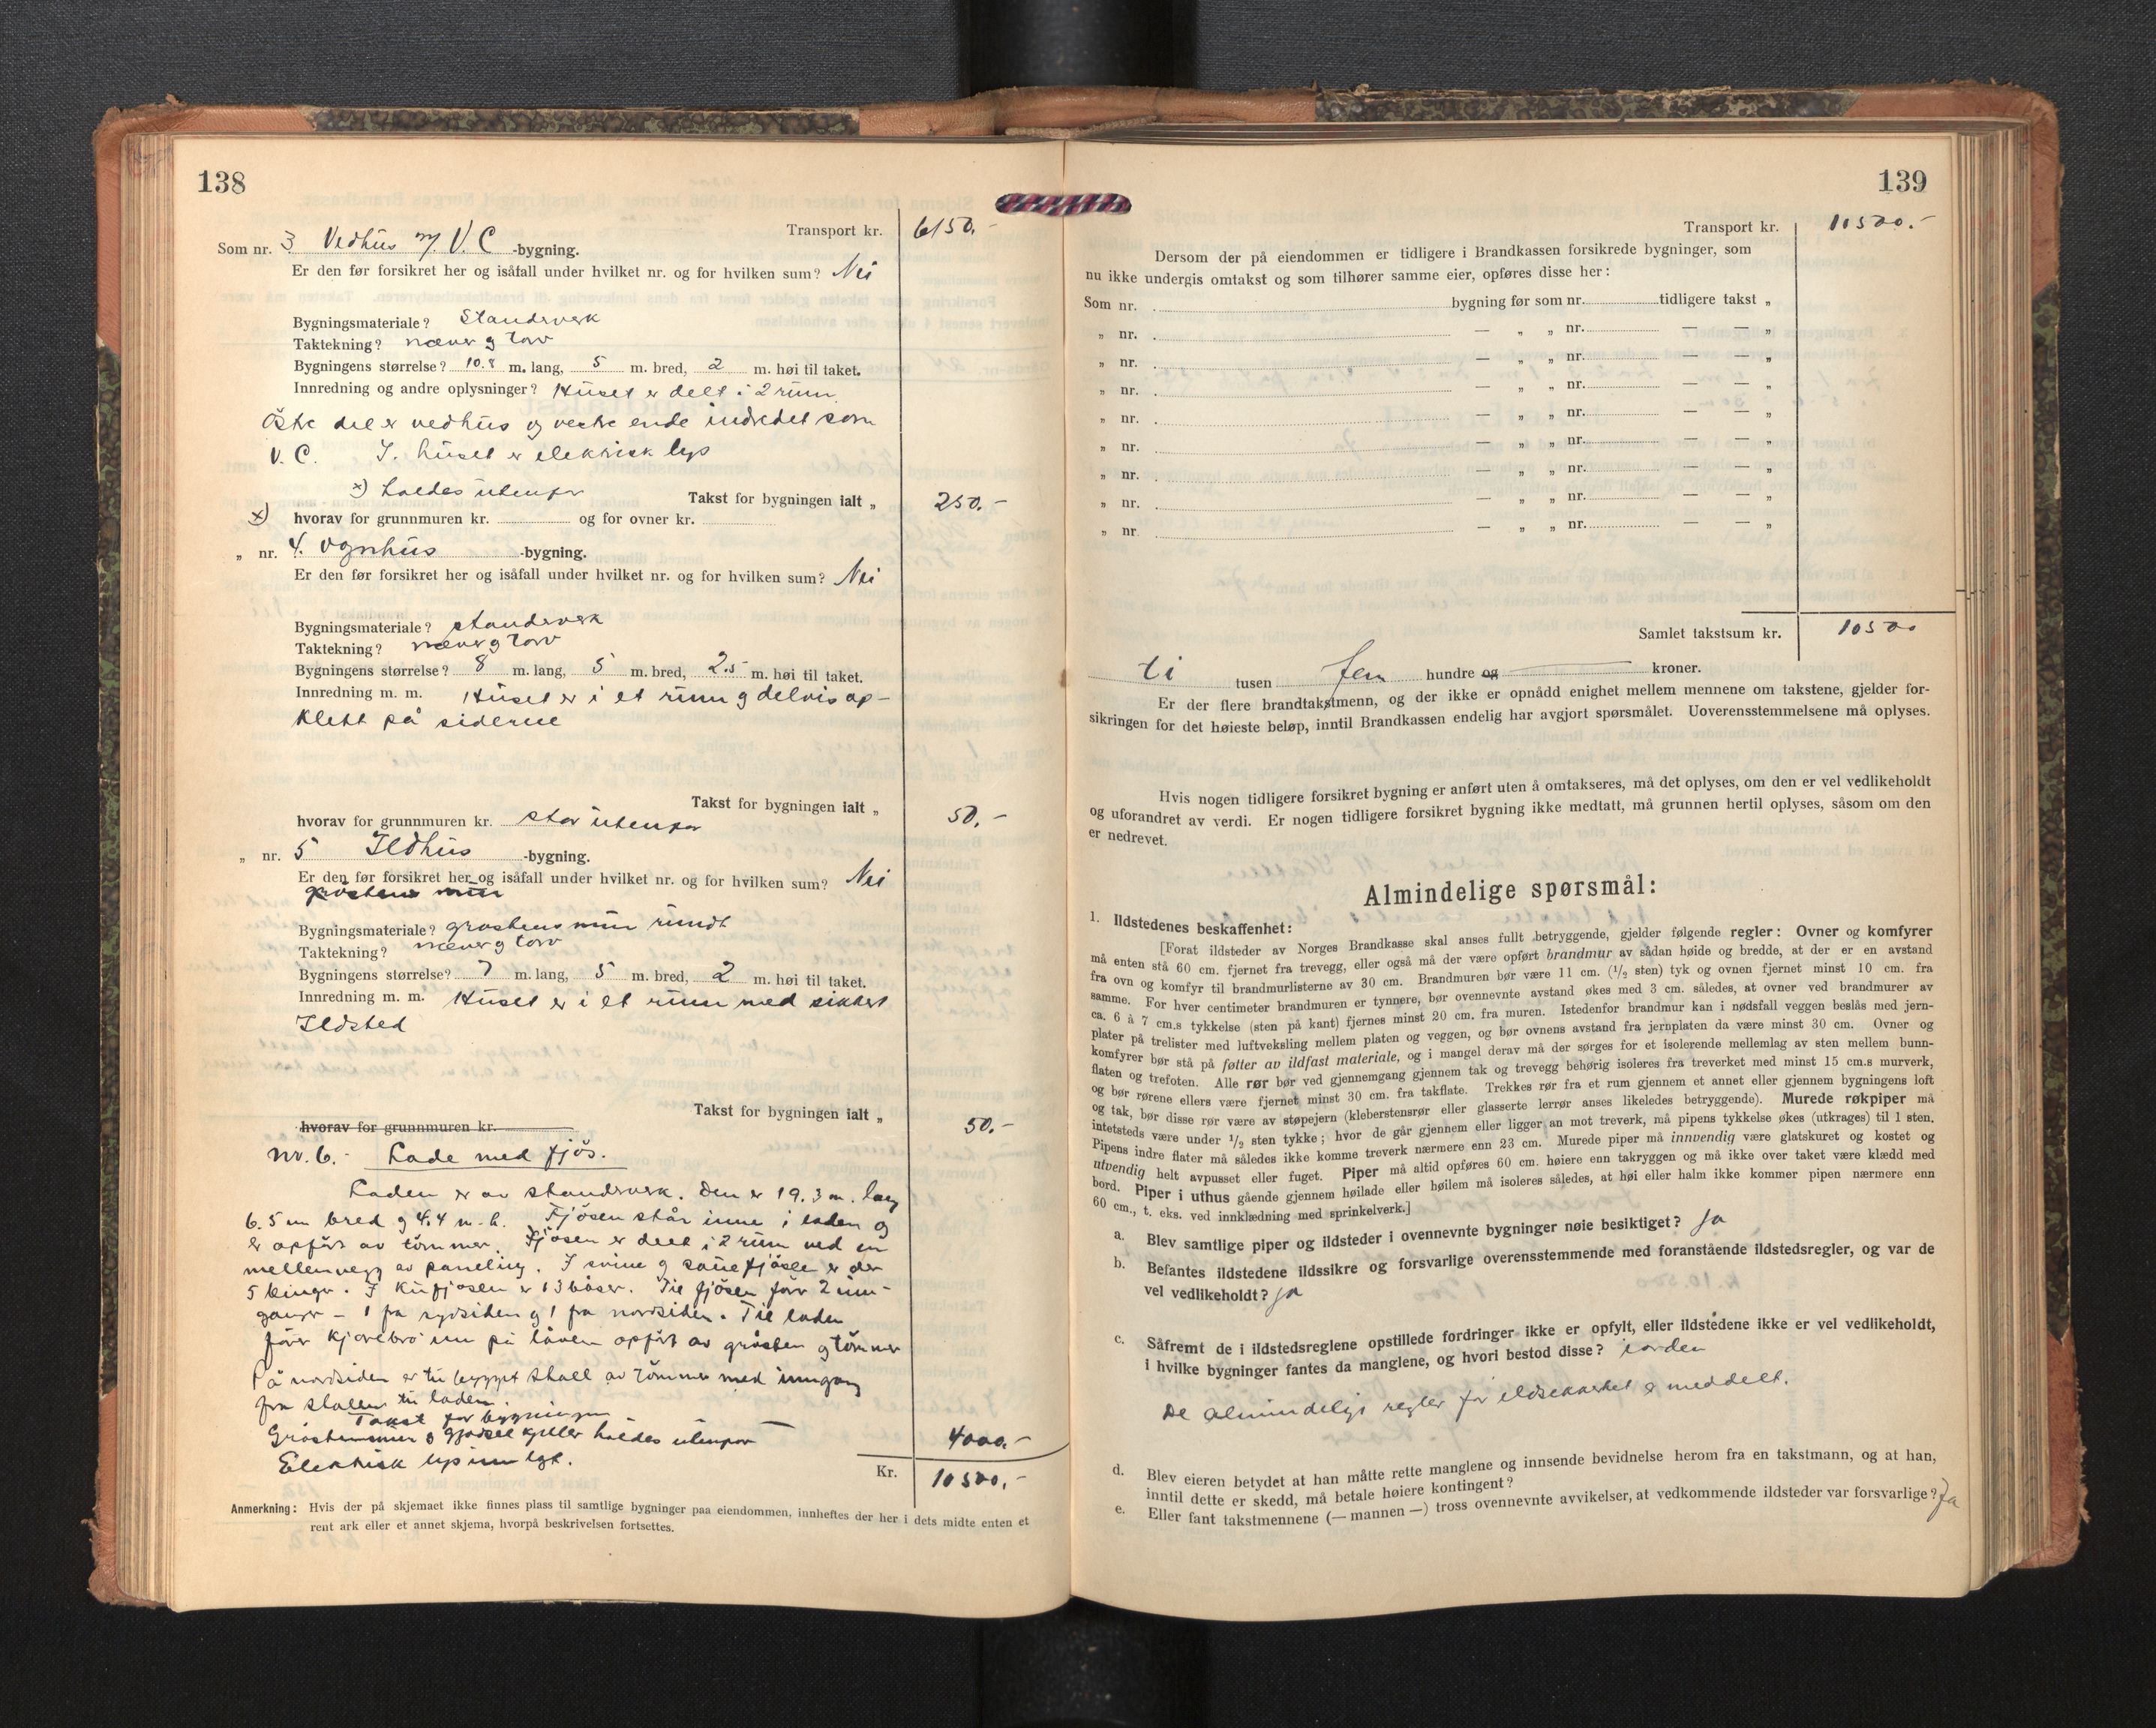 138
Transport kr. 6150.-
Som nr. 3 Vedhus m/ V.C -bygning.
Er den før forsikret her og isåfall under hvilket nr. og for hvilken sum? Nei
Bygningsmateriale? Standverk
Taktekning? næver og torv
Bygningens størrelse? 10.8 m. lang, 5 m. bred, 2 m. høi til taket.
Innredning og andre oplysninger? Huset er delt i 2 rum
Östre del er vedhus og vestre ende indredet som
V. C. I huset er elektrisk lys
x) holdes utenfor
Takst for bygningen ialt „ 250.-
x) hvorav for grunnmuren kr. og for ovner kr.
„ nr. 4. Vognhus -bygning.
Er den før forsikret her og isåfall under hvilket nr. og for hvilken sum? Nei
Bygningsmateriale? standverk
Taktekning? næver og torv
Bygningens størrelse? 8 m. lang, 5 m. bred, 2.5 m. høi til taket.
Innredning m. m. Huset er i et rum og delvis op-
klett på siderne
Takst for bygningen ialt „ 50.-
hvorav for grunnmuren kr. står utenfor
„ nr. 5 Ildhus -bygning.
Er den før forsikret her og isåfall under hvilket nr. og for hvilken sum? Nei
gråstens mur
Bygningsmateriale? gråstens mur rundt
Taktekning? næver og torv
Bygningens størrelse? 7 m. lang, 5 m. bred, 2 m. høi til taket.
Innredning m. m. Huset er i et rum med sikkert
Ildsted
Takst for bygningen ialt „ 50.-
hvorav for grunnmuren kr.
Nr. 6.- Lade med fjös.
Laden er av standverk. Den er 19.3 m. lang
6.5 m bred og 4.4 m. h. Fjösen står inne i laden og
er opført av tömmer. Fjösen er delt i 2 rum ved en
mellenvegg av paneling. I svine og sauefjösen er der
5 binger. I kufjösen er 13 båser. Til fjösen før 2 inn-
ganger - 1 fra sydsiden og 1 fra nordsiden. Til laden
förer kjørebro inn på låven opført av gråsten og tömmer
På nordsiden er til bygget stall av tömmer med inngang
fra stallen til laden.
Takst for bygningen
Gråstensmur og gjødselkjeller holdes utenfor 4000.-
Elektrisk lys innlagt.
Kr. 10500.-
Anmerkning: Hvis der på skjemaet ikke finnes plass til samtlige bygninger paa eiendommen, innheftes der her i dets midte enten et
rent ark eller et annet skjema, hvorpå beskrivelsen fortsettes.
139
Transport kr. 10500.-
Dersom der på eiendommen er tidligere i Brandkassen forsikrede bygninger, som
nu ikke undergis omtakst og som tilhører samme eier, opføres disse her:
Som nr. bygning før som nr. tidligere takst „
„ nr. — „ „ nr. — — „
„ nr. — „ „ nr. — — „
„ nr. — „ „ nr. — — „
„ nr. — „ „ nr. — — „
„ nr. — „ „ nr. — — „
„ nr. — „ „ nr. — — „
„ nr. — „ „ nr. — — „
„ nr. — „ „ nr. — — „
Samlet takstsum kr. 10500
ti tusen fem hundre og kroner.
Er der flere brandtakstmenn, og der ikke er opnådd enighet mellem mennene om takstene, gjelder for-
sikringen for det høieste beløp, inntil Brandkassen endelig har avgjort spørsmålet. Uoverensstemmelsene må oplyses.
Hvis nogen tidligere forsikret bygning er anført uten å omtakseres, må det oplyses, om den er vel vedlikeholdt
og uforandret av verdi. Er nogen tidligere forsikret bygning ikke medtatt, må grunnen hertil oplyses, såsom om den
er nedrevet.
Almindelige spørsmål:
1. Ildstedenes beskaffenhet:
[Forat ildsteder av Norges Brandkasse skal anses fullt betryggende, gjelder følgende regler: Ovner og komfyrer
må enten stå 60 cm. fjernet fra trevegg, eller også må der være opført brandmur av sådan høide og bredde, at der er en avstand
fra ovn og komfyr til brandmurlisterne av 30 cm. Brandmuren bør være 11 cm. (1/2 sten) tyk og ovnen fjernet minst 10 cm. fra
samme. For hver centimeter brandmuren er tynnere, bør ovennevnte avstand økes med 3 cm. således, at ovner ved brandmurer av
ca. 6 à 7 cm.s tykkelse (sten på kant) fjernes minst 20 cm. fra muren. Istedenfor brandmur kan i nødsfall veggen beslås med jern-
plater på trelister med luftveksling mellem platen og veggen, og bør ovnens avstand fra jernplaten da være minst 30 cm. Ovner og
komfyrer bør stå på føtter av ildfast materiale, og i mangel derav må der sørges for et isolerende mellemlag av sten mellem bunn-
flaten og trefoten. Alle rør bør ved gjennemgang gjennem tak og trevegg behørig isoleres fra treverket med minst 15 cm.s murverk,
og bør rørene ellers være fjernet minst 30 cm. fra takflate. Trekkes rør fra et rum gjennem et annet eller gjennem bygningens loft
og tak, bør disse rør være av støpejern (kleberstensrør eller glasserte lerrør anses likeledes betryggende). Murede røkpiper må
intetsteds være under 1/2 sten tykke; hvor de går gjennem eller ligger an mot treverk, må pipens tykkelse økes (utkrages) til 1 sten.
Pipens indre flater må således ikke komme treverk nærmere enn 23 cm. Murede piper må innvendig være glatskuret og kostet og
utvendig helt avpusset eller fuget. Piper må altid opføres 60 cm. høiere enn takryggen og må ikke over taket være klædd med
bord. Piper i uthus gående gjennem høilade eller høilem må isoleres således, at høi eller halm ikke kommer pipen nærmere enn
60 cm., t. eks. ved innklædning med sprinkelverk.]
a. Blev samtlige piper og ildsteder i ovennevnte bygninger nøie besiktiget? ja
b. Befantes ildstedene ildssikre og forsvarlige overensstemmende med foranstående ildstedsregler, og var de
vel vedlikeholdt? ja
c. Såfremt de i ildstedsreglene opstillede fordringer ikke er opfylt, eller ildstedene ikke er vel vedlikeholdt,
i hvilke bygninger fantes da manglene, og hvori bestod disse? iorden
De almindelige regler for ildsikkerhet er meddelt.
d. Blev eieren betydet at han måtte rette manglene og innsende bevidnelse herom fra en takstmann, og at han,
inntil dette er skedd, må betale høiere kontingent?
e. Eller fant takstmennene (— mannen —) tross ovennevnte avvikelser, at vedkommende ildsteder var forsvarlige? Ja